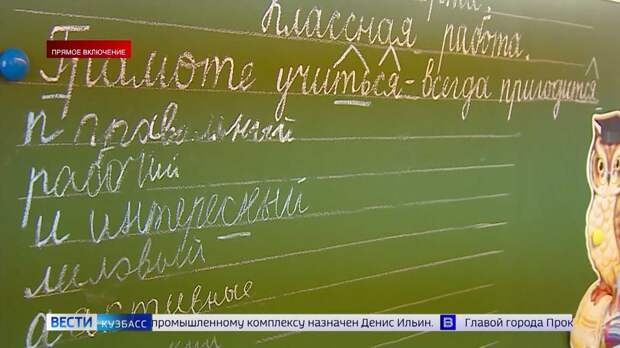 ПРЯМОЕ ВКЛЮЧЕНИЕ
Классная работа.
Грамоте учиться - всегда пригодится
п правильный
рабочий
и интересный
меловый
активные
ВЕСТИ КУЗБАСС промышленному комплексу назначен Денис Ильин. В Главой города Прок